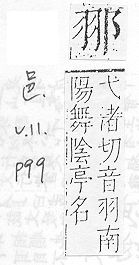 弋渚切音羽南
陽舞陰亭名
邑.
v.11.
p99